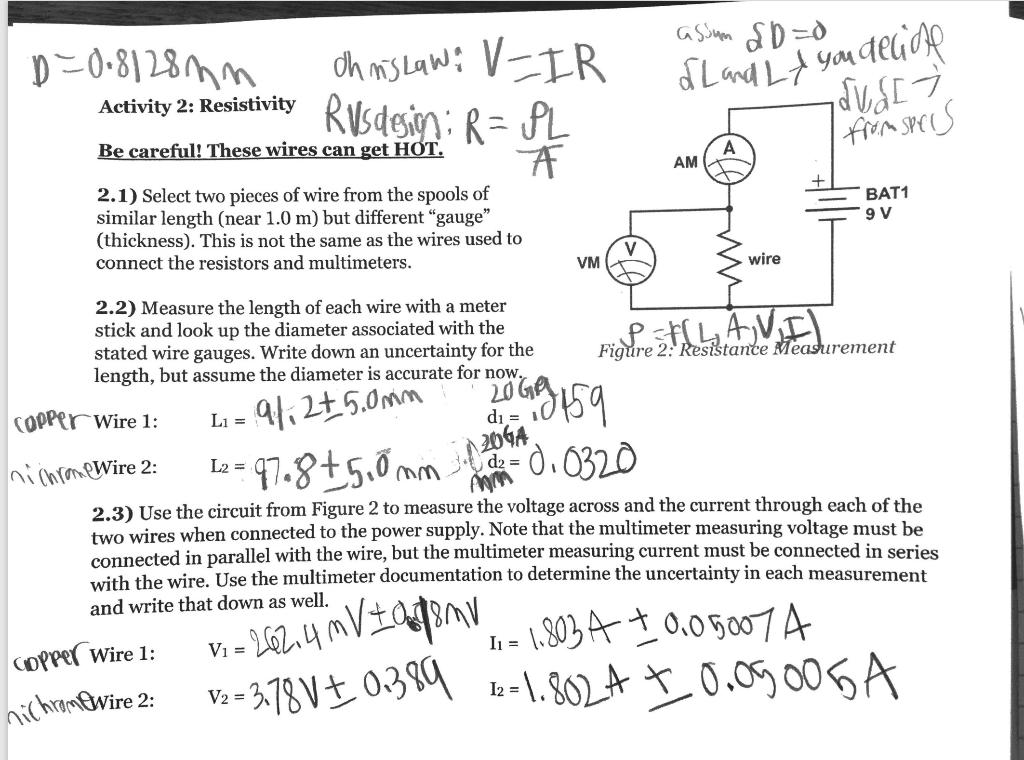 D=0.8128mm
ohmslaw: V=IR
assum δD=0
δL and L → you decide
δV,δI →
from specs
Activity 2: Resistivity
RVsdesign: R = ρL/A
Be careful! These wires can get HOT.
2.1) Select two pieces of wire from the spools of
similar length (near 1.0 m) but different “gauge”
(thickness). This is not the same as the wires used to
connect the resistors and multimeters.
AM
A
+
BAT1
9 V
VM
V
wire
2.2) Measure the length of each wire with a meter
stick and look up the diameter associated with the
stated wire gauges. Write down an uncertainty for the
length, but assume the diameter is accurate for now.
ρ=f(L,A,V,I)
Figure 2: Resistance Measurement
copper Wire 1: L₁ = 91.2±5.0mm 20GA d₁ =
nichrome Wire 2: L₂ = 97.8±5.0mm 20GA d₂ = 0.0320
2.3) Use the circuit from Figure 2 to measure the voltage across and the current through each of the
two wires when connected to the power supply. Note that the multimeter measuring voltage must be
connected in parallel with the wire, but the multimeter measuring current must be connected in series
with the wire. Use the multimeter documentation to determine the uncertainty in each measurement
and write that down as well.
copper Wire 1: V₁ = 262.4mV± I₁ = 1.803A ± 0.05007A
nichrome Wire 2: V₂ = 3.78V± 0.389 I₂ = 1.802A ± 0.05005A